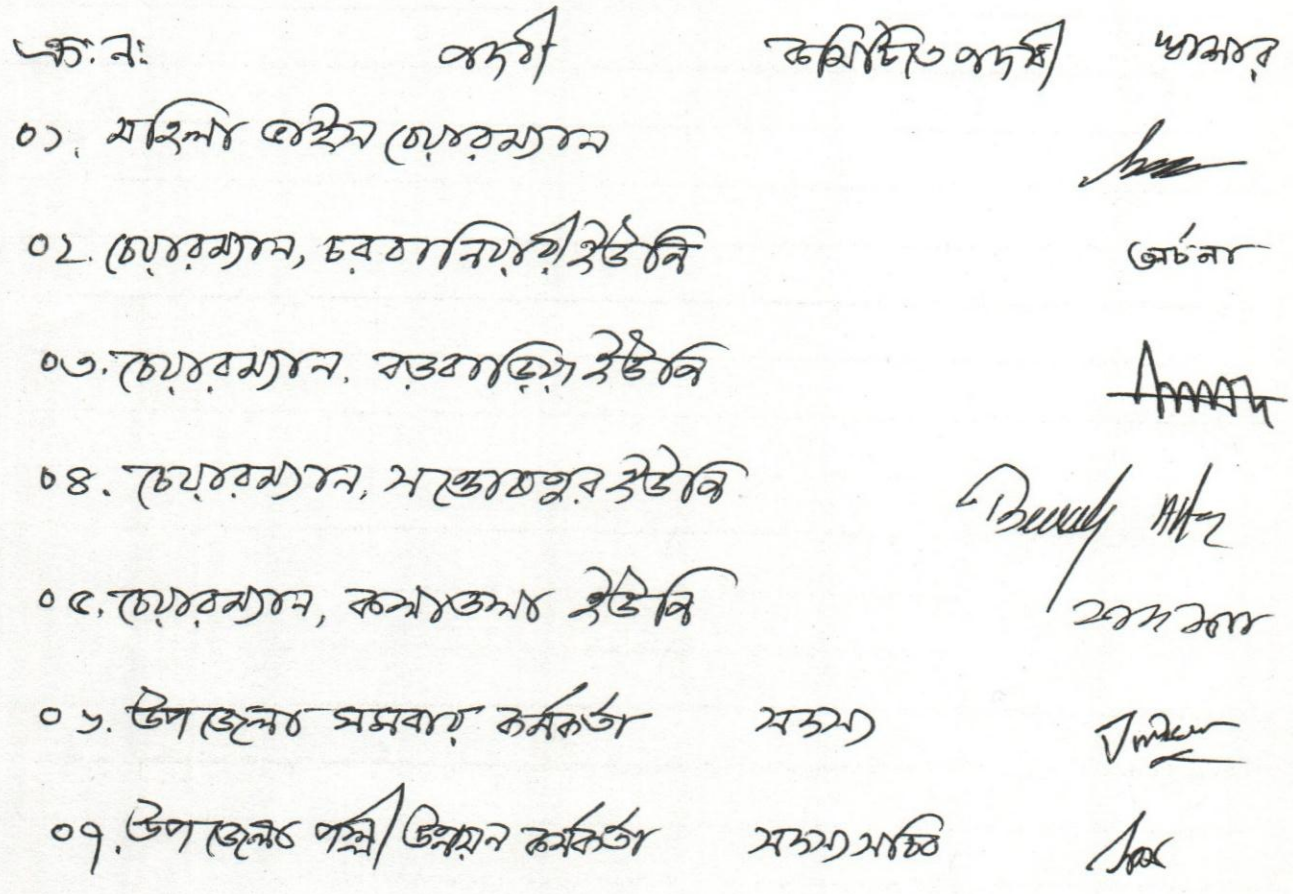 ক্র: ন: পদবী কমিটিতে পদবী স্বাক্ষর
০১. মহিলা ভাইস চেয়ারম্যান
০২. চেয়ারম্যান, চরবানিয়ারী ইউনি অর্চনা
০৩. চেয়ারম্যান, বড়বাড়িয়া ইউনি
০৪. চেয়ারম্যান, সন্তোষপুর ইউনি
০৫. চেয়ারম্যান, কলাতলা ইউনি
০৬. উপজেলা সমবায় কর্মকর্তা সদস্য
০৭. উপজেলা পল্লী উন্নয়ন কর্মকর্তা সদস্য সচিব